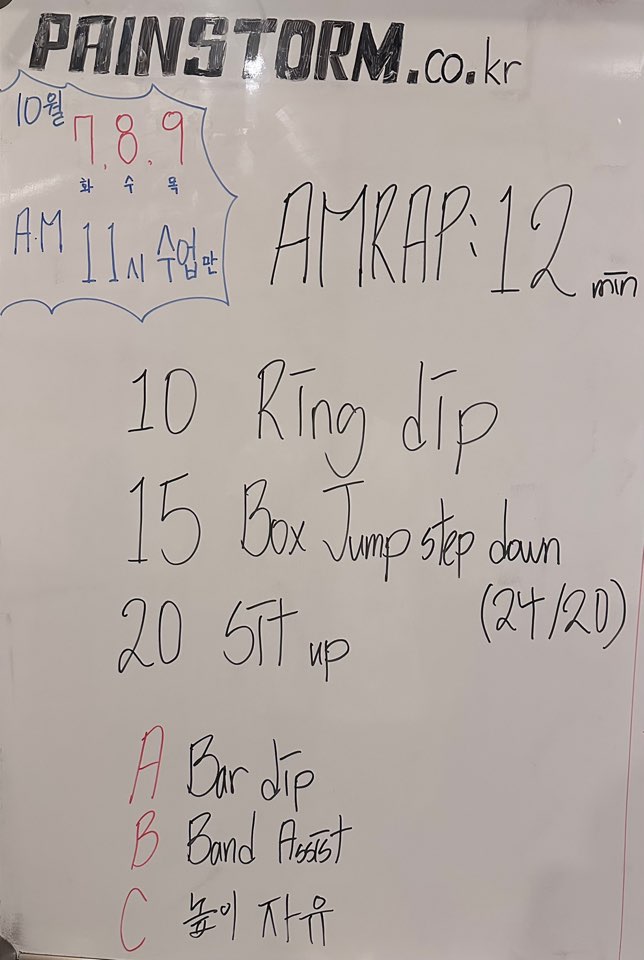 PAINSTORM.co.kr
10월
7.8.9
화 수 목
A.M 11시 수업만
AMRAP: 12 min
10 Ring dip
15 Box Jump step down
(24/20)
20 Sit up
A Bar dip
B Band Assist
C 높이 자유